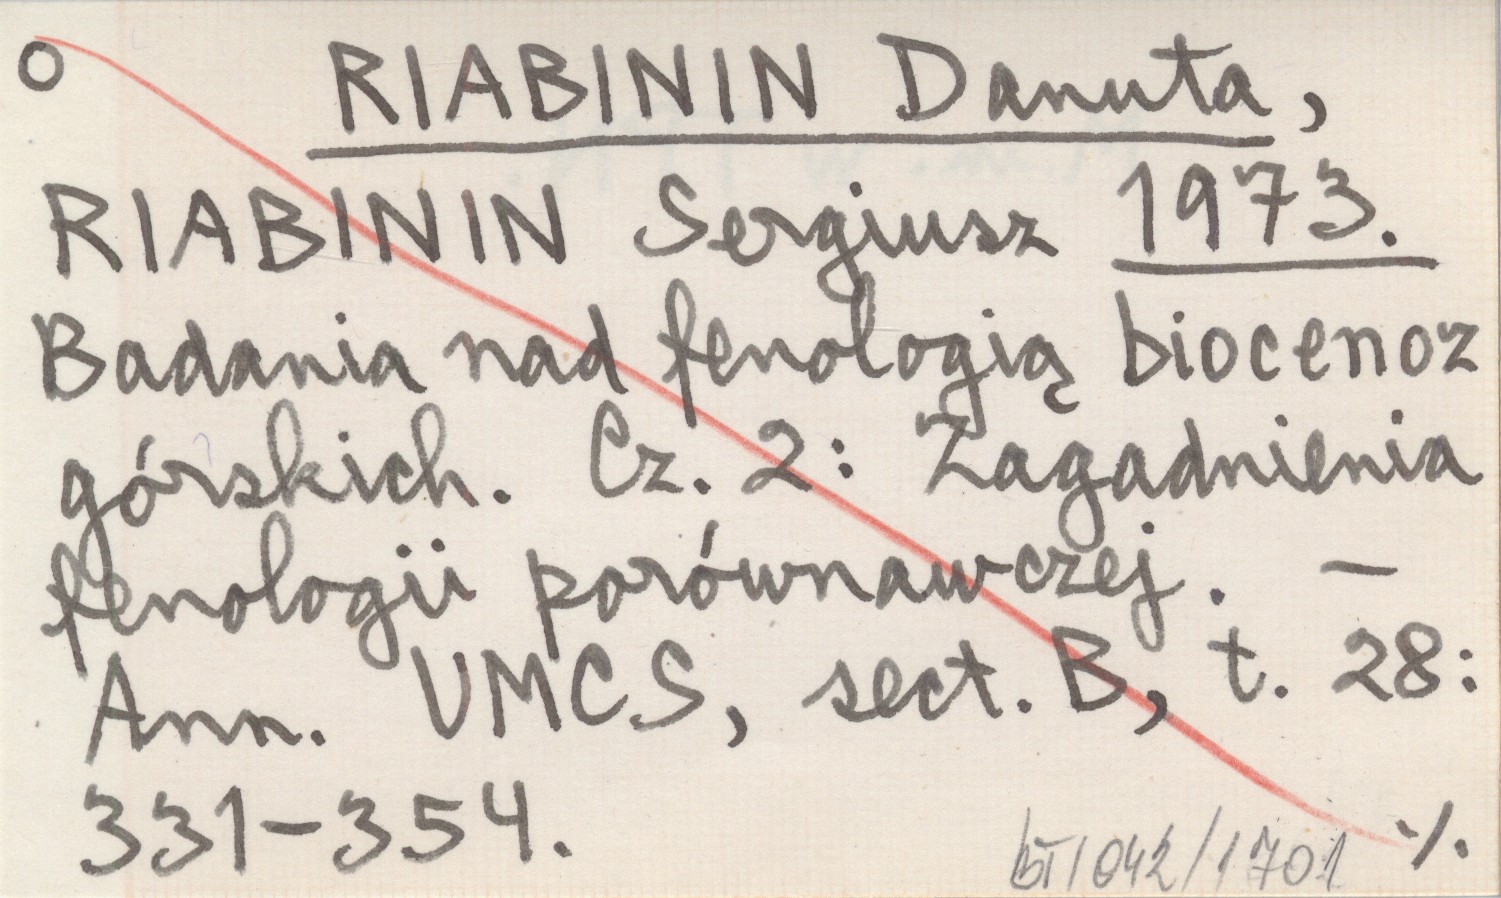 O RIABININ Danuta,
RIABININ Sergiusz 1973.
Badania nad fenologią biocenoz
górskich. Cz. 2: Zagadnienia
fenologii porównawczej. —
Ann. UMCS, sect. B, t. 28:
331-354. ·/.